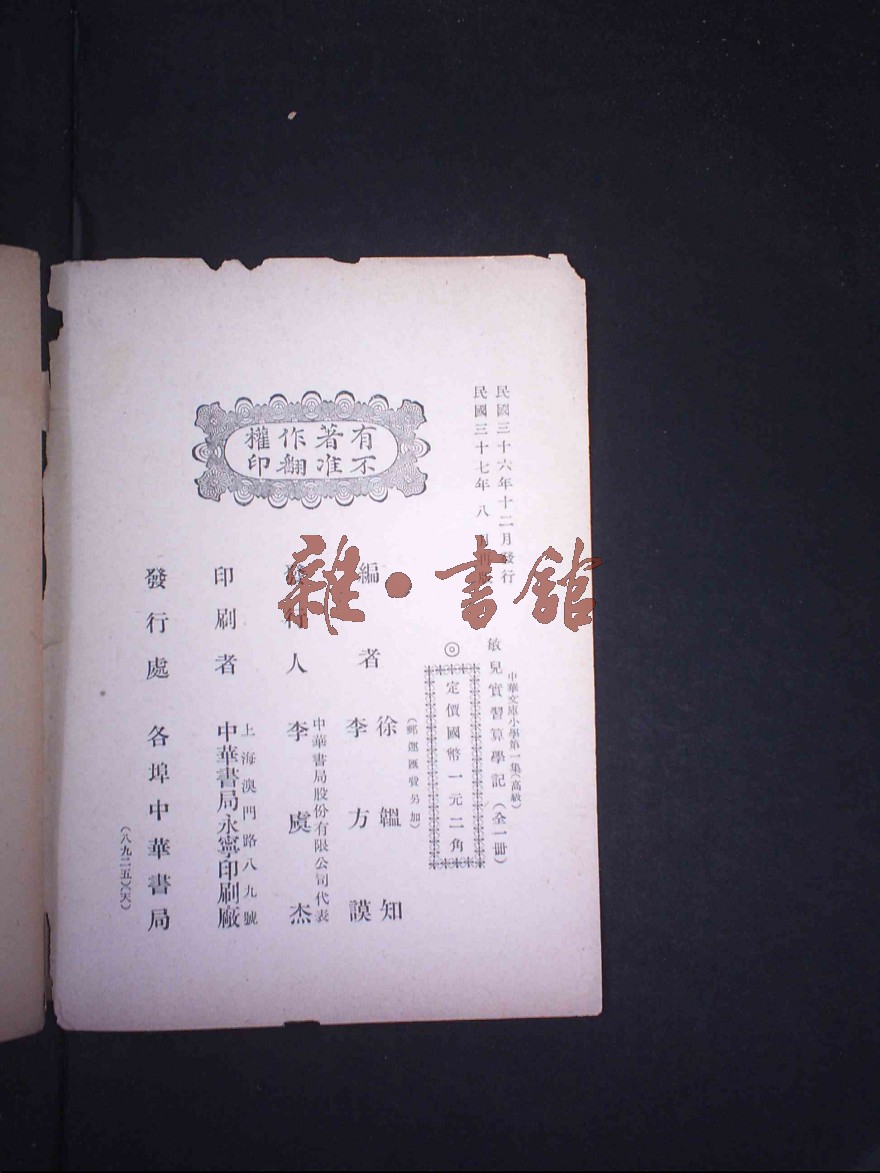 民國三十六年十二月發行
民國三十七年八月再版
中華文庫小學第一集(高級)
敏兒實習算學記(全一冊)
◎定價國幣一元二角
(郵運匯費另加)
有著作權
不准翻印
編者
徐韞知
李方謨
發行人
中華書局股份有限公司代表
李虞杰
印刷者
上海澳門路八九號
中華書局永寧印刷廠
發行處
各埠中華書局
(八九二五)(天)
雜·書館